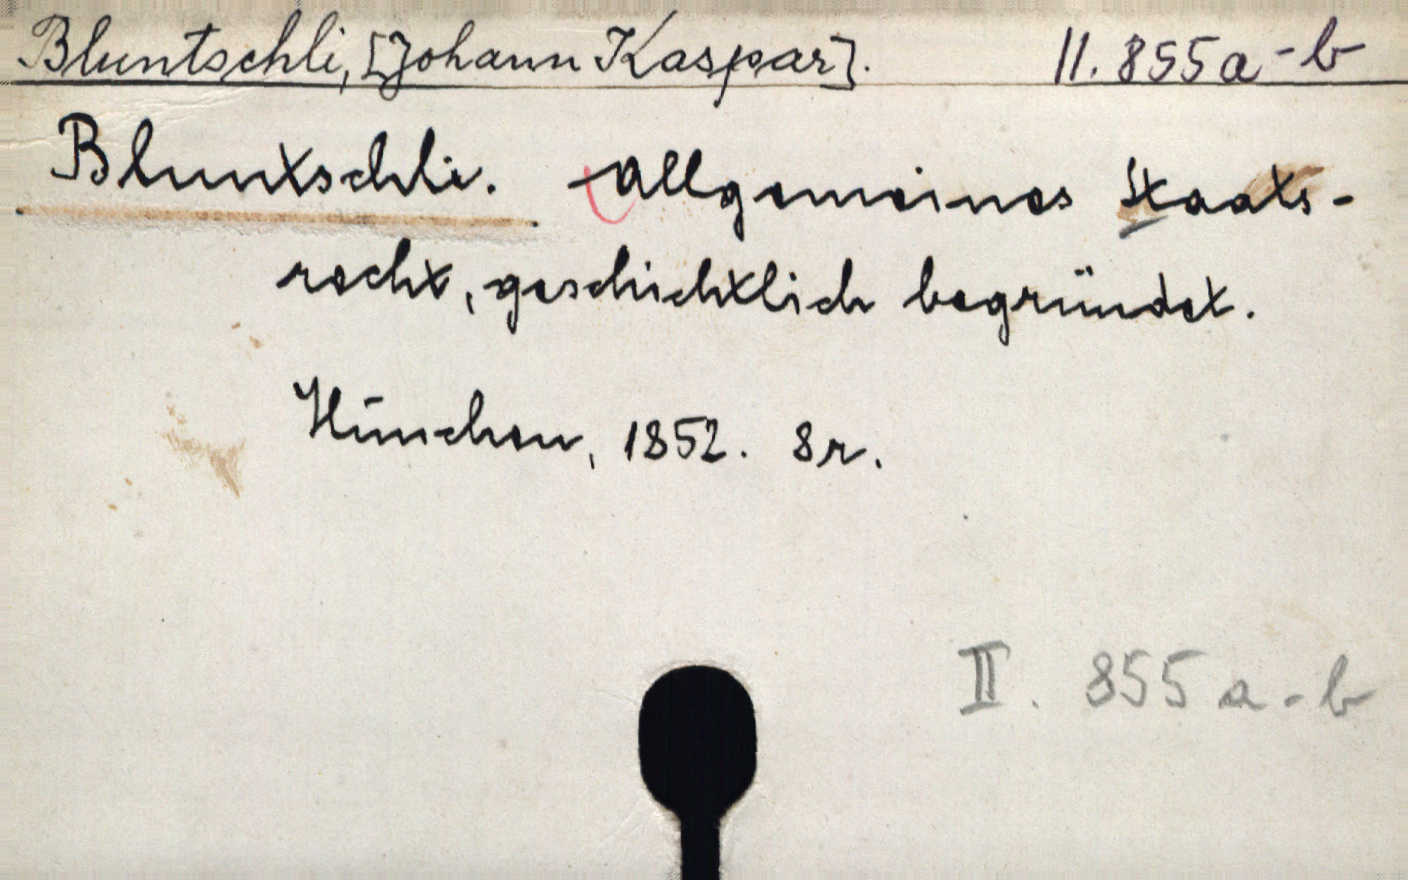 Bluntschli, [Johann Kaspar]. II. 855 a-b
Bluntschli. Allgemeines Staats-
recht, geschichtlich begründet.
München, 1852. 8r.
II. 855 a-b